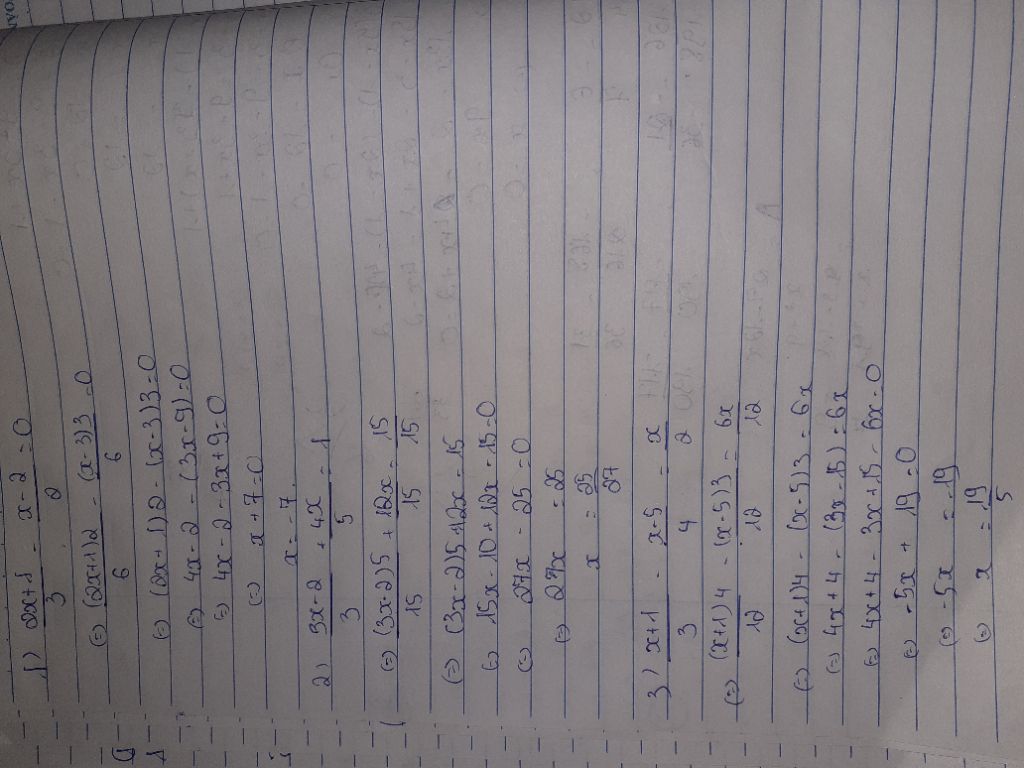 1) 2x+1/3 - x-2/2 = 0
(=) (2x+1)2/6 - (x-3)3/6 = 0
(=) (2x+1)2 - (x-3)3 = 0
(=) 4x-2 - (3x-9) = 0
(=) 4x-2-3x+9 = 0
(=) x+7 = 0
x = -7
2) 3x-2/3 + 4x/5 = 1
(=) (3x-2)5/15 + 12x/15 = 15/15
(=) (3x-2)5+12x = 15
(=) 15x-10+12x-15=0
(=) 27x - 25 = 0
(=) 27x = 25
x = 25/27
3) x+1/3 - x-5/4 = x/2
(=) (x+1)4/12 - (x-5)3/12 = 6x/12
(=) (x+1)4 - (x-5)3 = 6x
(=) 4x+4 - (3x-15) = 6x
(=) 4x+4 - 3x+15 - 6x = 0
(=) -5x + 19 = 0
(=) -5x = -19
(=) x = 19/5